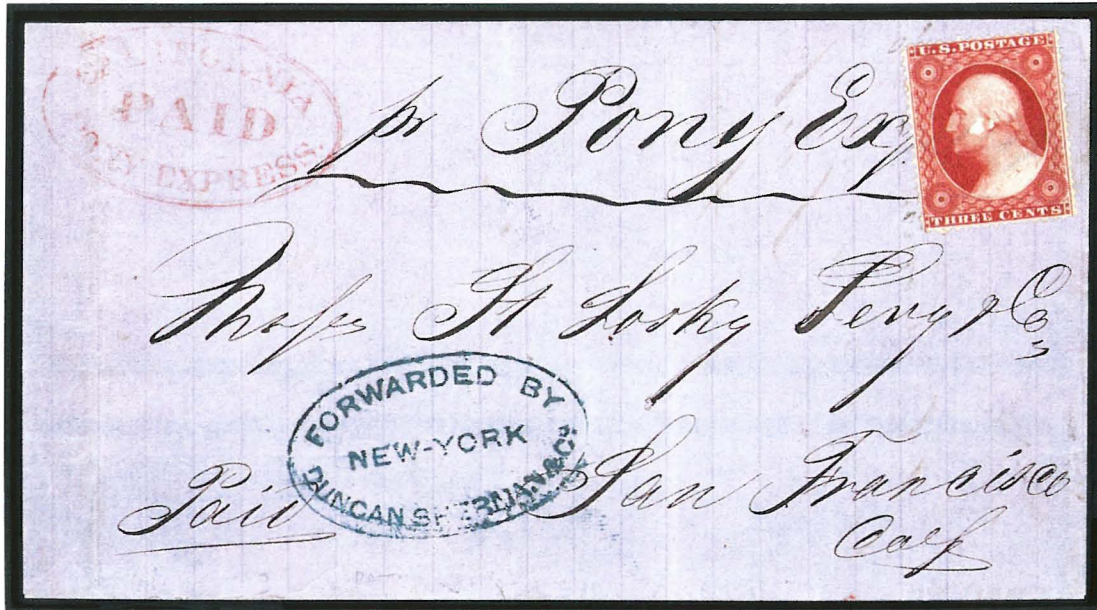 CALIFORNIA
PAID
PONY EXPRESS.
pr Pony Exp
U.S. POSTAGE
THREE CENTS
Messrs St Losky Levy & Co
FORWARDED BY
NEW-YORK
DUNCAN, SHERMAN & Co
Paid
San Francisco
Calf